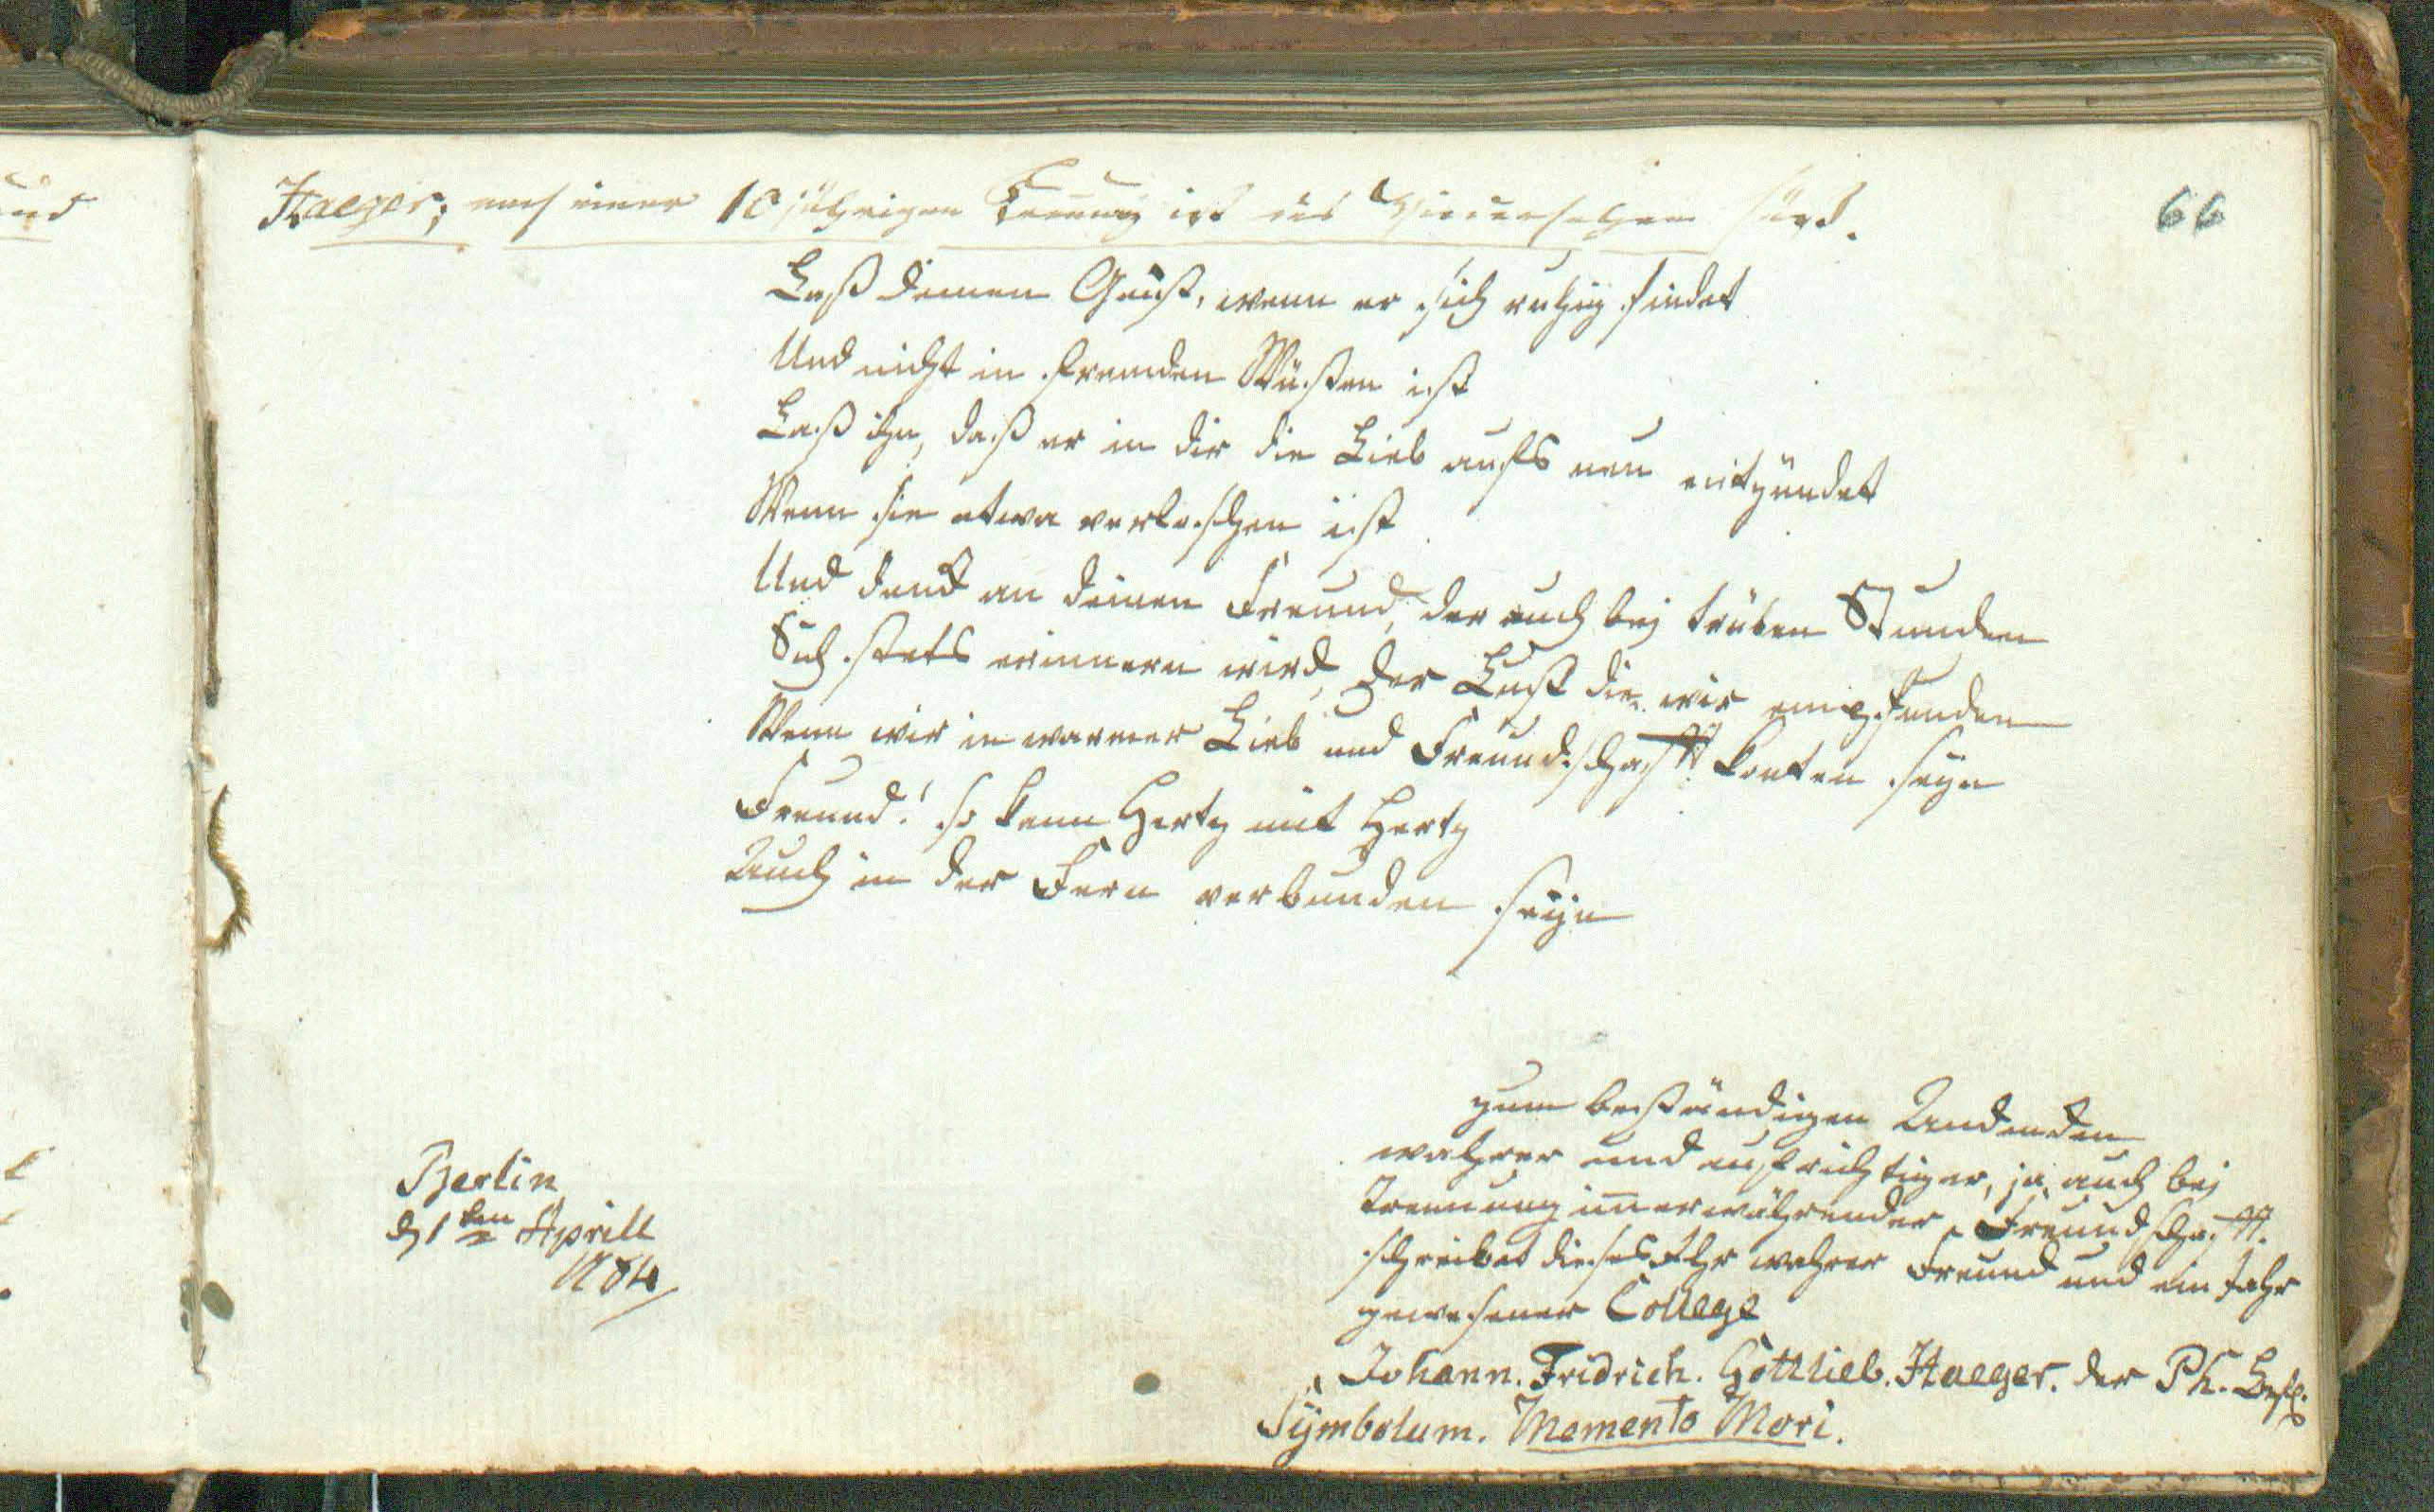 66
Haeger; nach einer 10 jährigen Trennung ist das Wiedersehen süß.
Laß deinen Geist, wenn er sich ruhig findet
Und nicht in fremden Wüsten ist
Laß ihn, daß er in dir die Lieb aufs neu entzündet
Wenn sie etwa verloschen ist
Und denk an deinen Freund, der auch bej trüben Stunden
Sich stets erinnern wird, der Lust die wir empfunden
Wenn wir in warmer Lieb und Freundschafft konten seyn
Freund! so kann Hertz mit Hertz
Auch in der Fern verbunden seyn
zum beständigen Andenken
wahrer und aufrichtiger, ja auch bej
Trennung imerwährender Freundschafft.
schreibet dieses Ihr wahrer Freund und ein Jahr
gewesener College
Johann. Fridrich. Gottlieb. Haeger. der Ph.
Symbolum. Memento Mori.
Berlin
d 1ten Aprill
1784